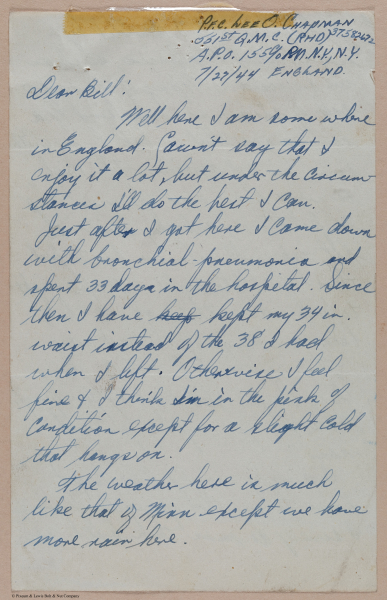 Pf.c. Lee O. Chapman
551st Q.M.C. (RHD) 37582672
A.P.O. 155 % P.M. N.Y., N.Y.
7/27/44 ENGLAND.
Dear Bill:
Well here I am some where
in England. Can't say that I
enjoy it a lot, but under the circum-
stances I'll do the best I can.
Just after I got here I came down
with bronchial-pneumonia and
spent 33 days in the hospital. Since
then I have keep kept my 34 in.
waist instead of the 38 I had
when I left. Otherwise I feel
fine & I think I'm in the pink of
condition except for a slight cold
that hangs on.
The weather here is much
like that of Minn except we have
more rain here.
© Heenan & Low's Bolt & Nut Company